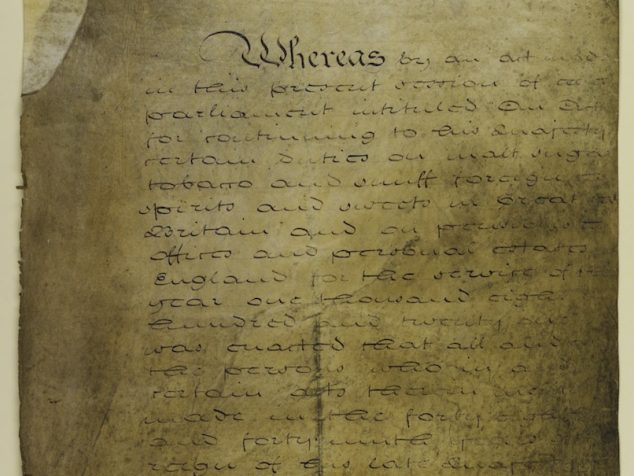 Whereas by an act made
in this present session of
parliament intituled An Act
for continuing to his Majesty
certain duties on malt sugar
tobacco and snuff foreign
spirits and sweets in Great
Britain and on pensions
offices and personal estates
England for the service of the
year one thousand eight
hundred and twenty one
was enacted that all and
the persons who in
certain acts therein
made in the forty eighth
and forty ninth years
reign of his late Majesty